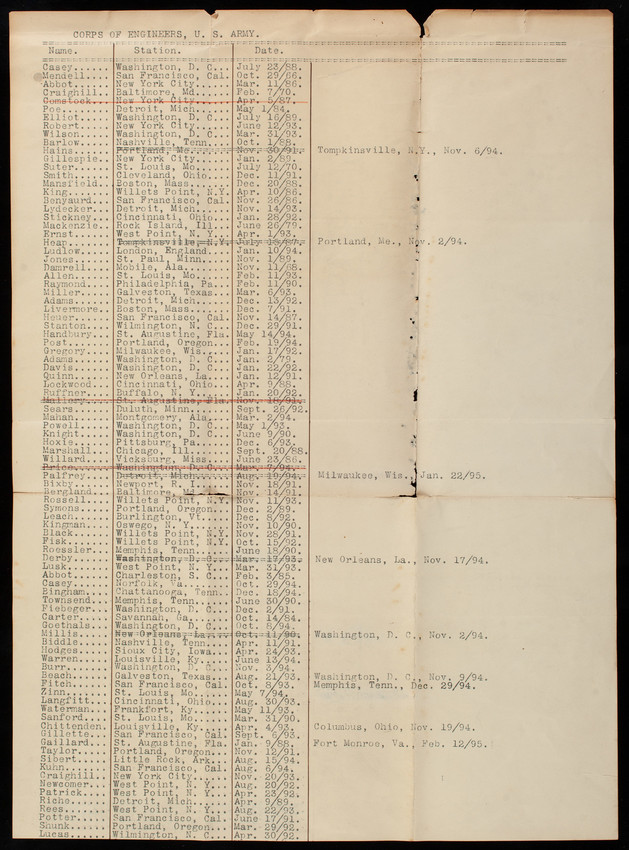 CORPS OF ENGINEERS, U. S. ARMY.
Name. Station. Date.
Casey...... Washington, D. C... July 23/88.
Mendell.... San Francisco, Cal. Oct. 29/66.
Abbot...... New York City...... Mar. 11/86.
Craighill.. Baltimore, Md...... Feb. 7/70.
Comstock... New York City...... Apr. 5/87.
Poe........ Detroit, Mich...... May 1/84.
Elliot..... Washington, D. C... July 16/89.
Robert..... New York City...... June 12/93.
Wilson..... Washington, D. C... Mar. 31/93.
Barlow..... Nashville, Tenn.... Oct. 1/88.
Hains...... Portland, Me....... Nov. 30/91. Tompkinsville, N.Y., Nov. 6/94.
Gillespie.. New York City...... Jan. 2/89.
Suter...... St. Louis, Mo...... July 12/70.
Smith...... Cleveland, Ohio.... Dec. 11/91.
Mansfield.. Boston, Mass....... Dec. 20/88.
King....... Willets Point, N.Y. Apr. 10/86.
Benyaurd... San Francisco, Cal. Nov. 26/86.
Lydecker... Detroit, Mich...... Nov. 14/93.
Stickney... Cincinnati, Ohio... Jan. 28/92.
Mackenzie.. Rock Island, Ill... June 26/79.
Ernst...... West Point, N. Y... Apr. 1/93.
Heap....... Tompkinsville, N.Y. July 16/87. Portland, Me., Nov. 2/94.
Ludlow..... London, England.... Jan. 10/94.
Jones...... St. Paul, Minn..... Nov. 1/89.
Damrell.... Mobile, Ala........ Nov. 11/88.
Allen...... St. Louis, Mo...... Feb. 11/93.
Raymond.... Philadelphia, Pa... Feb. 11/90.
Miller..... Galveston, Texas... Mar. 6/93.
Adams...... Detroit, Mich...... Dec. 13/92.
Livermore.. Boston, Mass....... Dec. 7/91.
Heuer...... San Francisco, Cal. Nov. 14/87.
Stanton.... Wilmington, N. C... Dec. 29/91.
Handbury... St. Augustine, Fla. May 14/94.
Post....... Portland, Oregon... Feb. 19/94.
Gregory.... Milwaukee, Wis..... Jan. 17/92.
Adams...... Washington, D. C... Jan. 2/79.
Davis...... Washington, D. C... Jan. 22/92.
Quinn...... New Orleans, La.... Jan. 12/91.
Lockwood... Cincinnati, Ohio... Apr. 9/88.
Ruffner.... Buffalo, N. Y...... Jan. 20/92.
Mallery.... St. Augustine, Fla. Nov. 18/91.
Sears...... Duluth, Minn....... Sept. 26/92.
Mahan...... Montgomery, Ala.... Mar. 2/94.
Powell..... Washington, D. C... May 1/93.
Knight..... Washington, D. C... June 9/90.
Hoxie...... Pittsburg, Pa...... Dec. 6/93.
Marshall... Chicago, Ill....... Sept. 20/88.
Willard.... Vicksburg, Miss.... June 23/86.
Price...... Washington, D. C... Mar. 7/94.
Palfrey.... Detroit, Mich...... Aug. 19/94. Milwaukee, Wis., Jan. 22/95.
Bixby...... Newport, R. I...... Nov. 18/91.
Bergland... Baltimore, Md...... Nov. 14/91.
Rossell.... Willets Point, N.Y. Nov. 11/93.
Symons..... Portland, Oregon... Dec. 2/89.
Leach...... Burlington, Vt..... Dec. 8/92.
Kingman.... Oswego, N. Y....... Nov. 10/90.
Black...... Willets Point, N.Y. Nov. 28/91.
Fisk....... Willets Point, N.Y. Oct. 15/92.
Roessler... Memphis, Tenn...... June 18/90.
Derby...... Washington, D. C... Mar. 17/93. New Orleans, La., Nov. 17/94.
Lusk....... West Point, N. Y... Mar. 31/93.
Abbot...... Charleston, S. C... Feb. 3/85.
Casey...... Norfolk, Va........ Oct. 29/94.
Bingham.... Chattanooga, Tenn. Dec. 18/94.
Townsend... Memphis, Tenn...... June 30/90.
Fiebeger... Washington, D. C... Dec. 2/91.
Carter..... Savannah, Ga....... Oct. 14/84.
Goethals... Washington, D. C... Oct. 8/94.
Millis..... New Orleans, La.... Oct. 11/90. Washington, D. C., Nov. 2/94.
Biddle..... Nashville, Tenn.... Apr. 11/91.
Hodges..... Sioux City, Iowa... Apr. 24/93.
Warren..... Louisville, Ky..... June 13/94.
Burr....... Washington, D. C... Nov. 3/94.
Beach...... Galveston, Texas... Aug. 21/93. Washington, D. C., Nov. 9/94.
Fitch...... San Francisco, Cal. Oct. 8/93. Memphis, Tenn., Dec. 29/94.
Zinn....... St. Louis, Mo...... May 7/94.
Langfitt... Cincinnati, Ohio... Aug. 30/93.
Waterman... Frankfort, Ky...... May 11/93.
Sanford.... St. Louis, Mo...... Mar. 31/90.
Chittenden. Louisville, Ky..... Apr. 4/93. Columbus, Ohio, Nov. 19/94.
Gillette... San Francisco, Cal. Sept. 6/93.
Gaillard... St. Augustine, Fla. Jan. 9/88. Fort Monroe, Va., Feb. 12/95.
Taylor..... Portland, Oregon... Nov. 12/91.
Sibert..... Little Rock, Ark... Aug. 15/94.
Kuhn....... San Francisco, Cal. Aug. 6/94.
Craighill.. New York City...... Nov. 20/93.
Newcomer... West Point, N. Y... Aug. 20/92.
Patrick.... West Point, N. Y... Apr. 23/92.
Riche...... Detroit, Mich...... Apr. 9/89.
Rees....... West Point, N. Y... Aug. 22/93.
Potter..... San Francisco, Cal. June 17/91.
Shunk...... Portland, Oregon... Mar. 29/92.
Lucas...... Wilmington, N. C... Apr. 30/92.